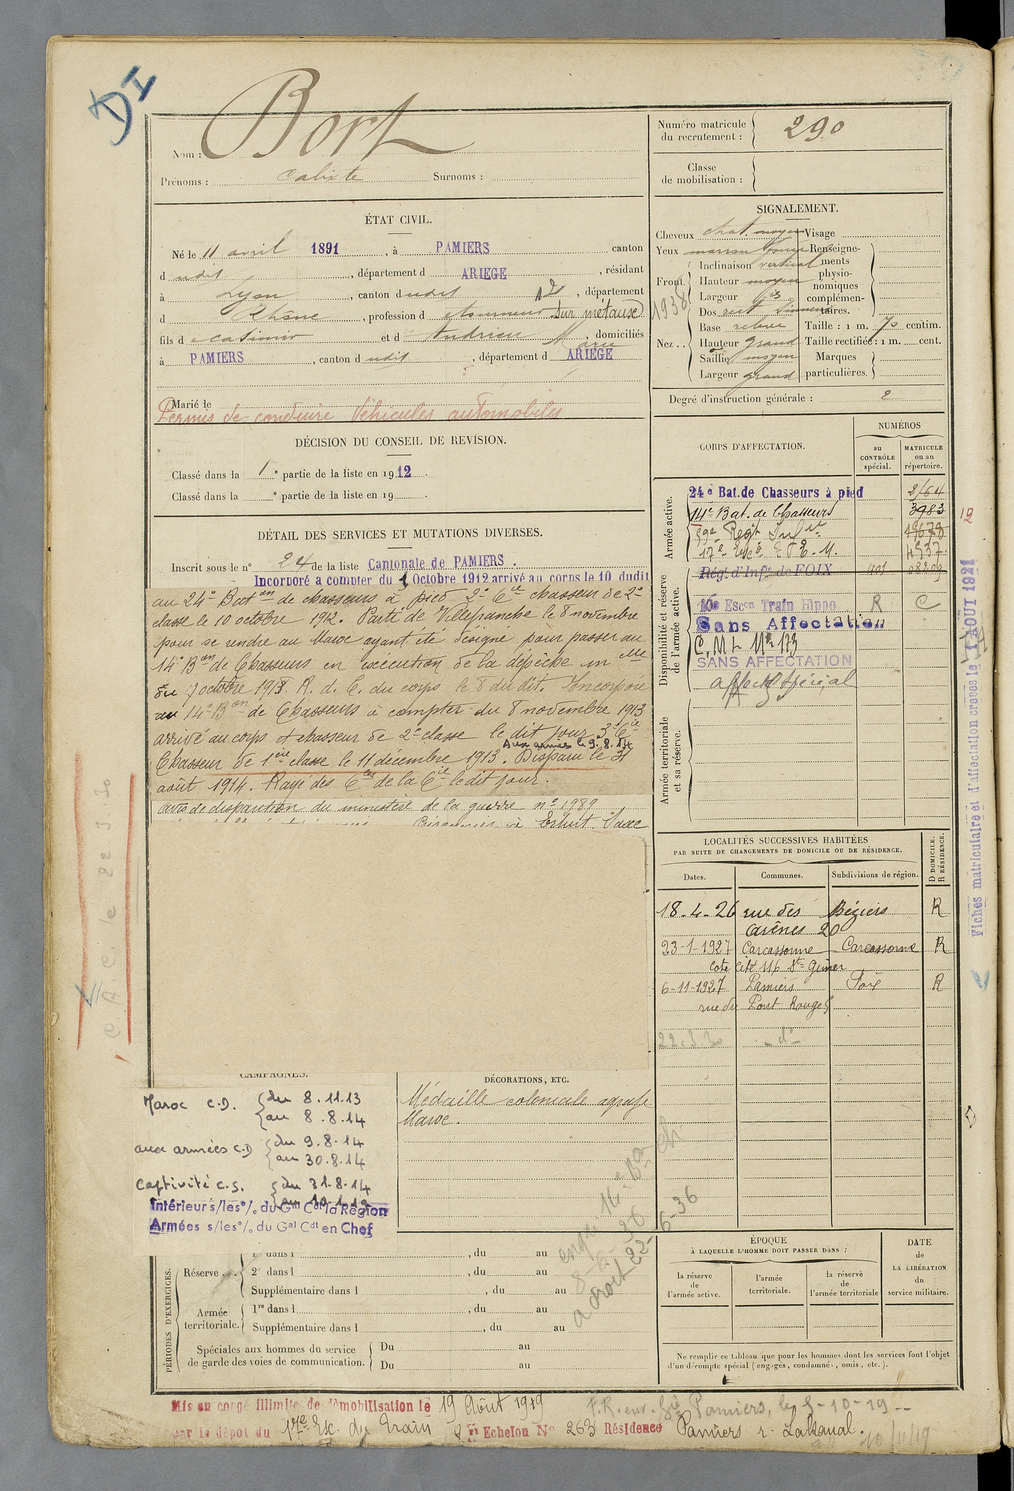 DI
Nom : Bort
Prénoms : Calixte Surnoms :
Numéro matricule du recrutement : 290
Classe de mobilisation :
ÉTAT CIVIL.
Né le 11 avril 1891, à PAMIERS canton
d udit, département d ARIEGE, résidant
à Lyon, canton dudit, département
d Rhône, profession d tourneur sur métaux
fils d et d Andrieu Marie domiciliés
à PAMIERS, canton d udit, département d ARIEGE
Marié le
Permis de conduire Véhicules automobiles
SIGNALEMENT.
Cheveux chat. moyen Visage
Yeux marron
Renseignements physionomiques complémentaires.
Front Inclinaison vertical
Hauteur moyen
Largeur
Nez Dos rect.
Base relevée
Hauteur grand
Saillie moyen
Largeur grand
Taille : 1 m. 70 centim.
Taille rectifiée : 1 m. cent.
Marques particulières.
1938
Degré d'instruction générale : 2
DÉCISION DU CONSEIL DE REVISION.
Classé dans la 1e partie de la liste en 1912.
Classé dans la e partie de la liste en 19
DÉTAIL DES SERVICES ET MUTATIONS DIVERSES.
Inscrit sous le no 24 de la liste Cantonale de PAMIERS.
Incorporé a compter du 1 Octobre 1912 arrivé au corps le 10 dudit
au 24e Baton de chasseurs à pied 2e Cie chasseur de 2e
classe le 10 octobre 1912. Parti de Villefranche le 8 novembre
pour se rendre au Maroc ayant été désigné pour passer au
14e Bon de Chasseurs en exécution de la dépêche mlle
du 7 octobre 1913 R. d. C. du corps le 8 du dit. Incorporé
au 14e Bon de Chasseurs à compter du 8 novembre 1913
arrivé au corps et chasseur de 2e classe le dit jour 3e Cie
Aux armées le 9.8.14
Chasseur de 1ère classe le 11 décembre 1913. Disparu le 31
août 1914. Rayé des Cles de la Cie le dit jour.
avis de disparition du ministère de la guerre no 1989
Prisonnier à Erfurt. Saxe
CORPS D'AFFECTATION.
NUMÉROS
au CONTRÔLE spécial.
MATRICULE ou au répertoire.
Armée active.
24e Bat. de Chasseurs à pied 2/64
14e Bat. de Chasseurs 3983
59e Regt Infie
17e Esc E.T.E.M. 4937
Disponibilité et réserve de l'armée active.
Régt d'Infie de FOIX 401
16e Escon Train Hippo R C
Sans Affectation
C.M.L. No 173
SANS AFFECTATION
Affecté Spécial
Armée territoriale et sa réserve.
12
Fiches matriculaire et d'affectation créées le 1 AOUT 1921
LOCALITÉS SUCCESSIVES HABITÉES
PAR SUITE DE CHANGEMENTS DE DOMICILE OU DE RÉSIDENCE.
Dates. Communes. Subdivisions de région. D DOMICILE. R RÉSIDENCE.
18-4-26 rue des Arènes 20 Béziers R
23-1-1927 Carcassonne Carcassonne R
cote cité 116 St Gimer
6-11-1927 Pamiers Foix R
rue du Pont Rouge 8
22.3.30 - d° -
C.A.C. le 22 3 30
CAMPAGNES.
Maroc C.D. du 8.11.13
au 8.8.14
aux armées C.D du 9.8.14
au 30.8.14
Captivité C.S. du 31.8.14
au 10.1.19
Intérieur s/les o/. du Gal Cdt la Région
Armées s/les o/. du Gal Cdt en Chef
DÉCORATIONS, ETC.
Médaille coloniale agrafe
Maroc.
22-6-36
PÉRIODES D'EXERCICES.
Réserve 1re dans l , du au
2e dans l , du au
Supplémentaire dans l , du au
Armée territoriale. 1re dans l , du au
Supplémentaire dans l , du au
Spéciales aux hommes du service de garde des voies de communication. Du au
Du au
ÉPOQUE
À LAQUELLE L'HOMME DOIT PASSER DANS :
la réserve de l'armée active.
l'armée territoriale.
la réserve de l'armée territoriale
DATE de LA LIBÉRATION du service militaire.
Ne remplir ce tableau que pour les hommes dont les services font l'objet
d'un décompte spécial (engagés, condamnés, omis, etc.).
Mis en congé illimité de démobilisation le 19 Août 1919
par le dépot du 17e Esc. du Train Echelon No 263 Résidence Pamiers r. Lakanal.
Pamiers, le 8-10-19
10/11/19